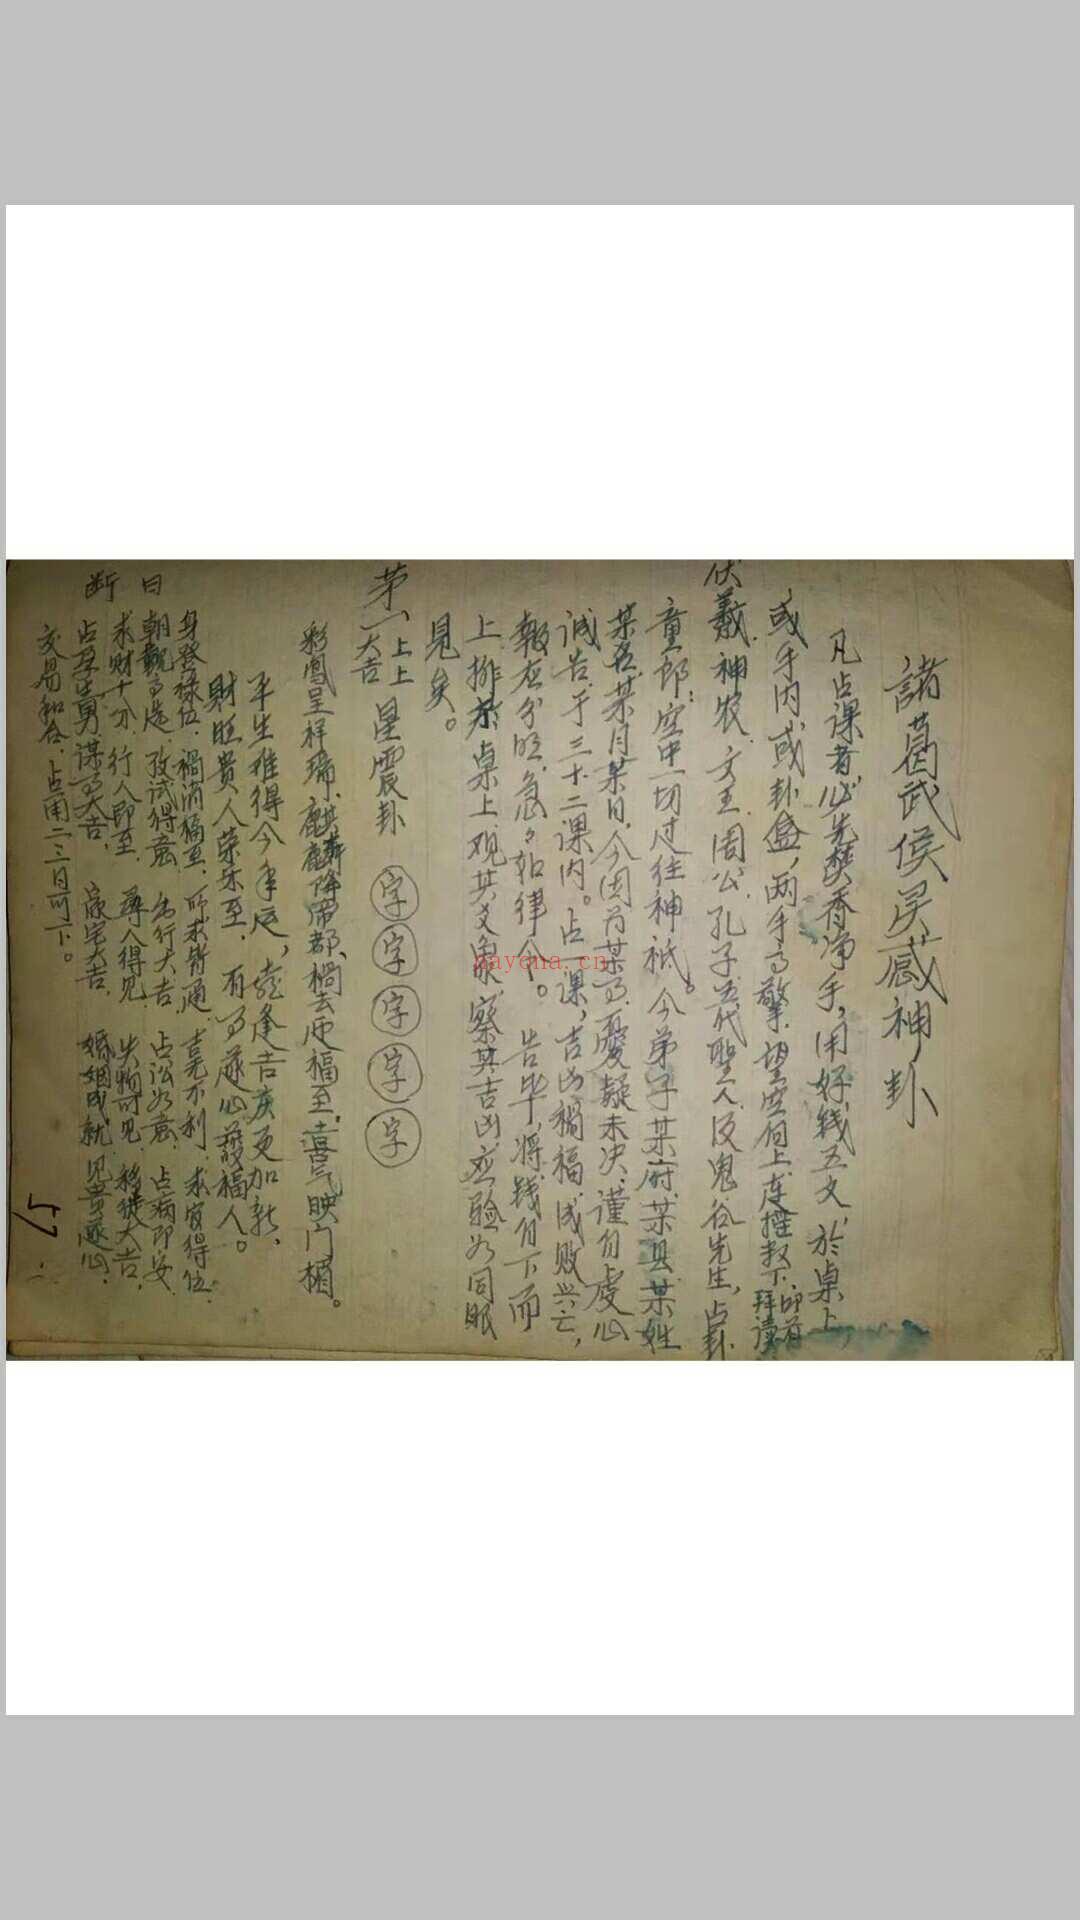 諸葛武侯灵感神卦
凡占课者,必先焚香净手,用好钱五文,於桌上,
或手内,或卦盒,两手高擎,望空向上,连摇数下,即前拜读
伏羲、神农、文王、周公、孔子、五代聖人、及鬼谷先生,占卦
童郎;空中一切过往神祇。今弟子某府某县某姓
某名,某月某日,今因为某事,憂疑未决,谨自虔心
诚告,于三十二课内。占一课,吉凶禍福,成败兴亡,
報应分明,急々如律令。 告毕,将钱自下而
上,排於桌上,观其爻象,察其吉凶,应验如同眼
見矣。
第一 上上大吉 星震卦 字 字 字 字 字
彩鳳呈祥瑞,麒麟降帝都,禍去迎福至,喜气映门楣。
平生难得今年运,逢吉庆更加新,
财旺貴人荣乐至,有事遂心發福人。
断曰
身登禄位,禍消福至,所求皆通,吉无不利,求官得位,
朝觐高选,孜试得意,出行大吉,占讼如意,占病即安,
求财十分,行人即至,尋人得見,失物可见,移徙大吉,
占孕生男,谋事大吉,家宅大吉,婚姻成就,见貴遂心,
交易和合,占雨二三日可下。
nayona.cn